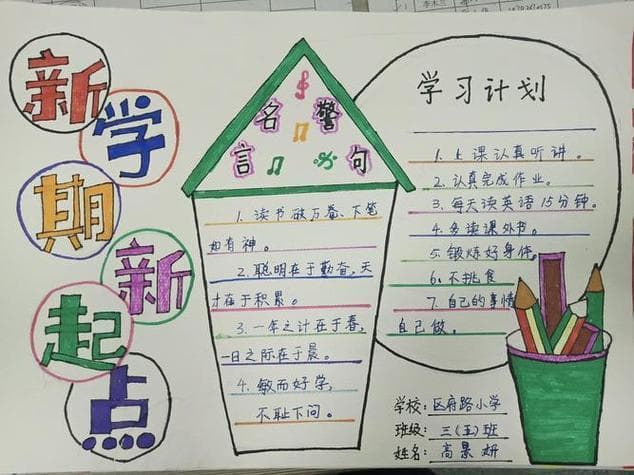 新
学
期
新
起
点
名 警
言 句
1. 读书破万卷、下笔
如有神。
2. 聪明在于勤奋, 天
才在于积累。
3. 一年之计在于春,
一日之际在于晨。
4. 敏而好学,
不耻下问。
学习计划
1. 上课认真听讲。
2. 认真完成作业。
3. 每天读英语15分钟。
4. 多读课外书。
5. 锻炼好身体。
6. 不挑食
7. 自己的事情
自己做。
学校: 区府路小学
班级: 三(五)班
姓名: 高景妍